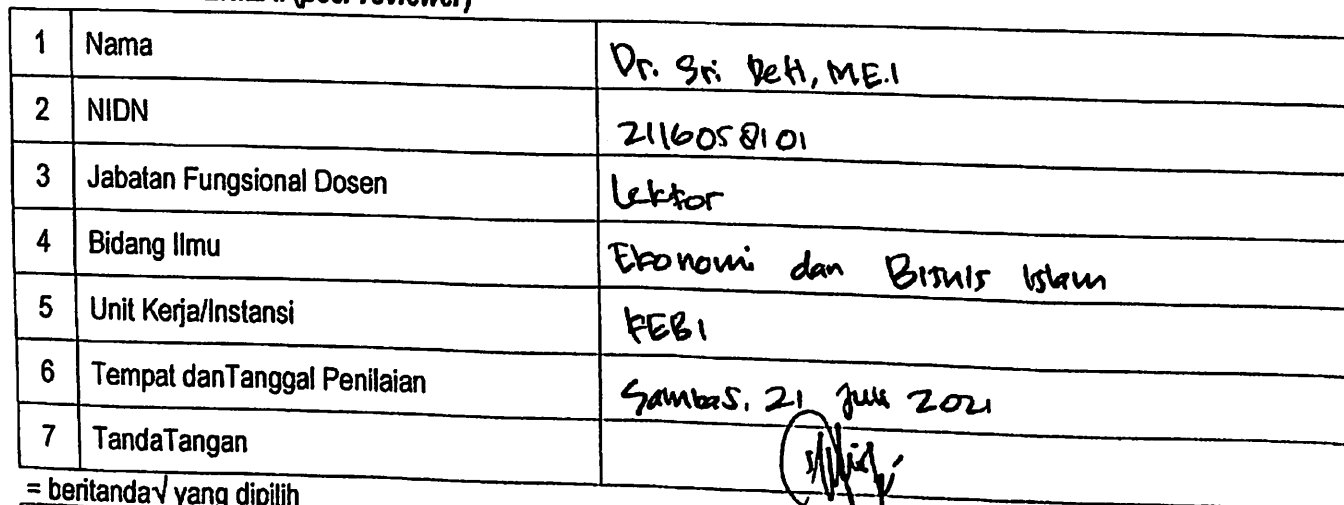 (peer reviewer)
1 Nama Dr. Sri Deti, ME.I
2 NIDN 2116058101
3 Jabatan Fungsional Dosen Lektor
4 Bidang Ilmu Ekonomi dan Bisnis Islam
5 Unit Kerja/Instansi FEBI
6 Tempat danTanggal Penilaian Sambas, 21 Juli 2021
7 TandaTangan
= beritanda√ yang dipilih